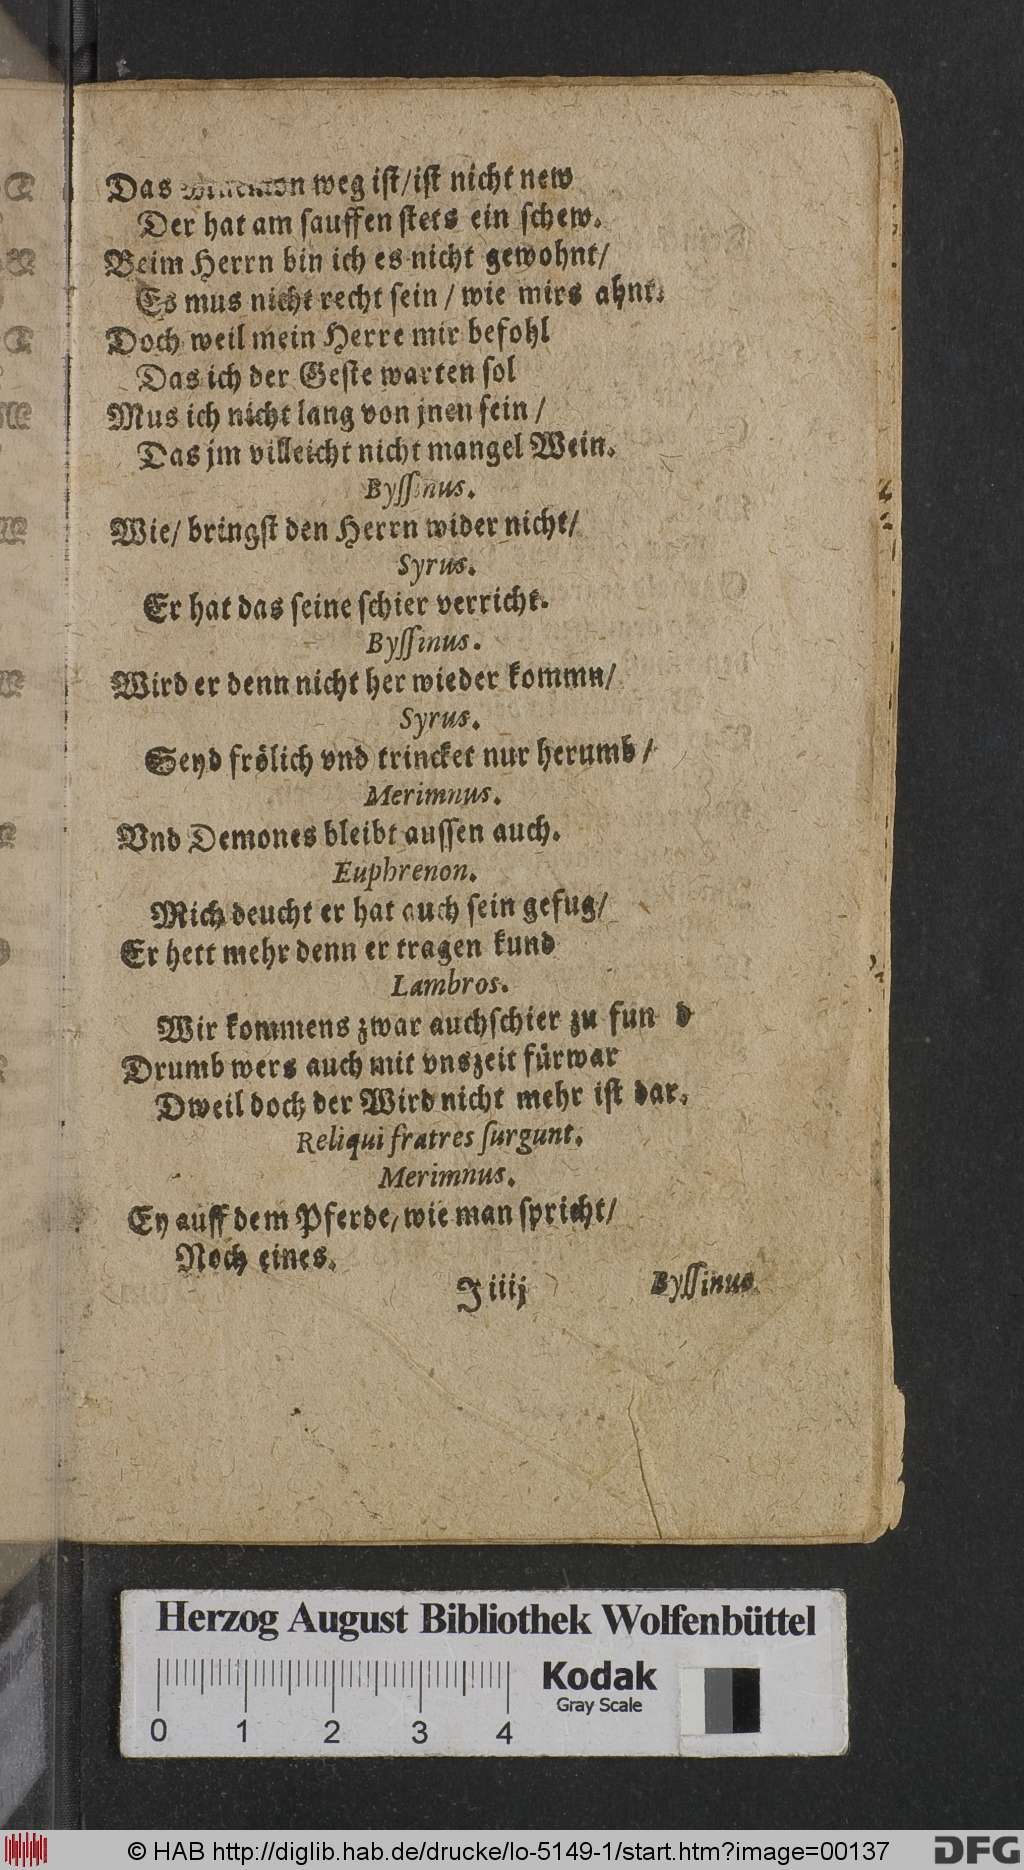 Das weg ist/ist nicht new
Der hat am sauffen stets ein schew.
Beim Herrn bin ich es nicht gewohnt/
Es mus nicht recht sein / wie mirs ahnt.
Doch weil mein Herre mir befohl
Das ich der Geste warten sol
Mus ich nicht lang von jnen sein /
Das jm villeicht nicht mangel Wein.
Byssinus.
Wie/ bringst den Herrn wider nicht/
Syrus.
Er hat das seine schier verricht.
Byssinus.
Wird er denn nicht her wieder kommn/
Syrus.
Seyd frölich vnd trincket nur herumb /
Merimnus.
Vnd Demones bleibt aussen auch.
Euphrenon.
Mich deucht er hat auch sein gefug/
Er hett mehr denn er tragen kund
Lambros.
Wir kommens zwar auchschier zu fun d
Drumb wers auch mit vnszeit fürwar
Dweil doch der Wird nicht mehr ist dar.
Reliqui fratres surgunt.
Merimnus.
Ey auff dem Pferde, wie man spricht/
Noch eines.
J iiij Byssinus.
Herzog August Bibliothek Wolfenbüttel
Kodak
Gray Scale
0 1 2 3 4
© HAB http://diglib.hab.de/drucke/lo-5149-1/start.htm?image=00137
DFG